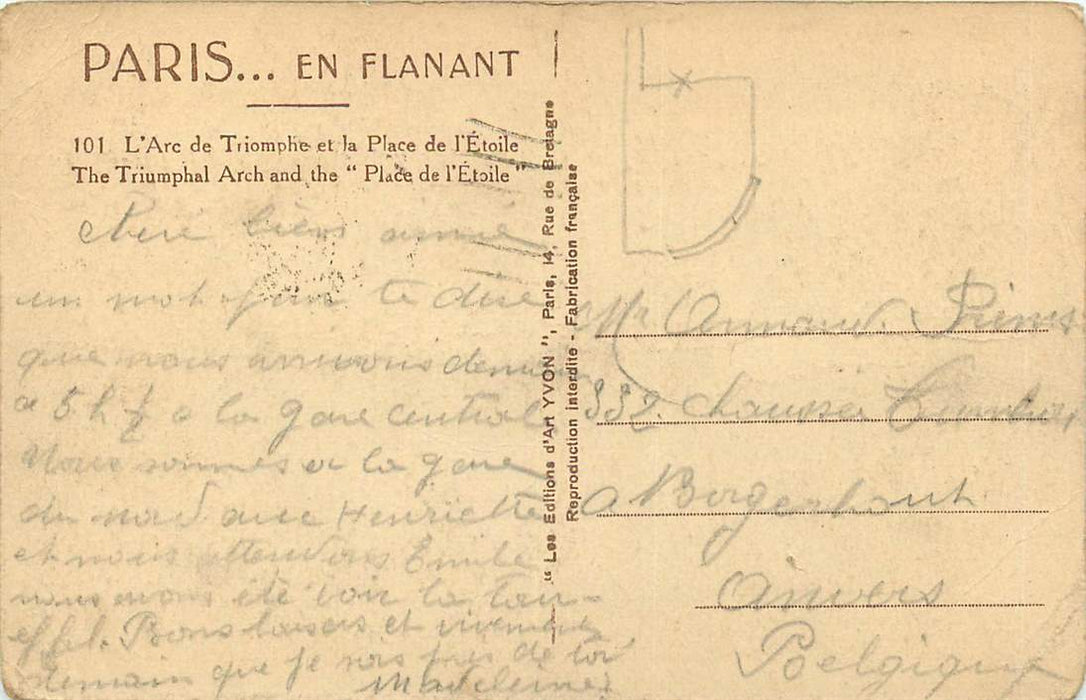 PARIS... EN FLANANT
101 L'Arc de Triomphe et la Place de l'Étoile
The Triumphal Arch and the “ Place de l'Étoile ”
Chéri bien aimé
un mot pour te dire
que nous arrivons demain
a 5 h ½ a la gare central
Nous sommes a la gare
du nord avec Henriette
et nous attendons Emile
nous avons été voir la tour
effel. Bons baisers et vivement
demain que je sois pres de toi
Madeleine
“ Les Editions d'Art YVON ”, Paris, 14, Rue de Bretagne
Reproduction interdite - Fabrication française
Mr Armand
332 chaussée
a Borgerhout
Anvers
Belgique